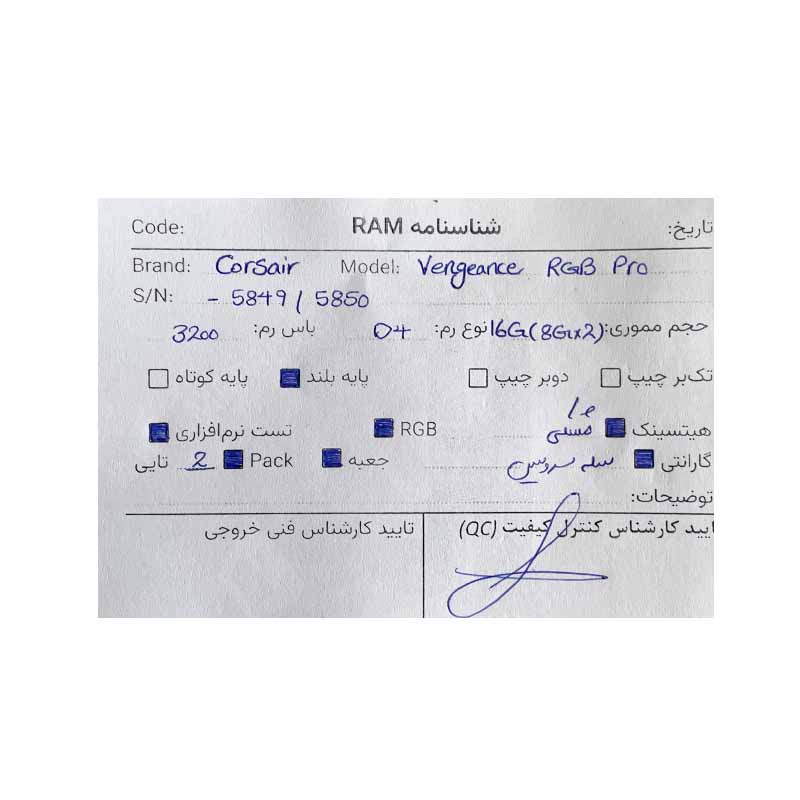 Code: شناسنامه RAM تاریخ:
Brand: Corsair Model: Vengeance RGB Pro
S/N: - 5849 / 5850
حجم مموری: 16G(8G×2) نوع رم: D4 باس رم: 3200
تک‌بر چیپ دوبر چیپ پایه بلند پایه کوتاه
هیتسینک مشکی RGB تست نرم‌افزاری
گارانتی جعبه Pack 2 تایی
توضیحات:
ایید کارشناس کنترل کیفیت (QC) تایید کارشناس فنی خروجی